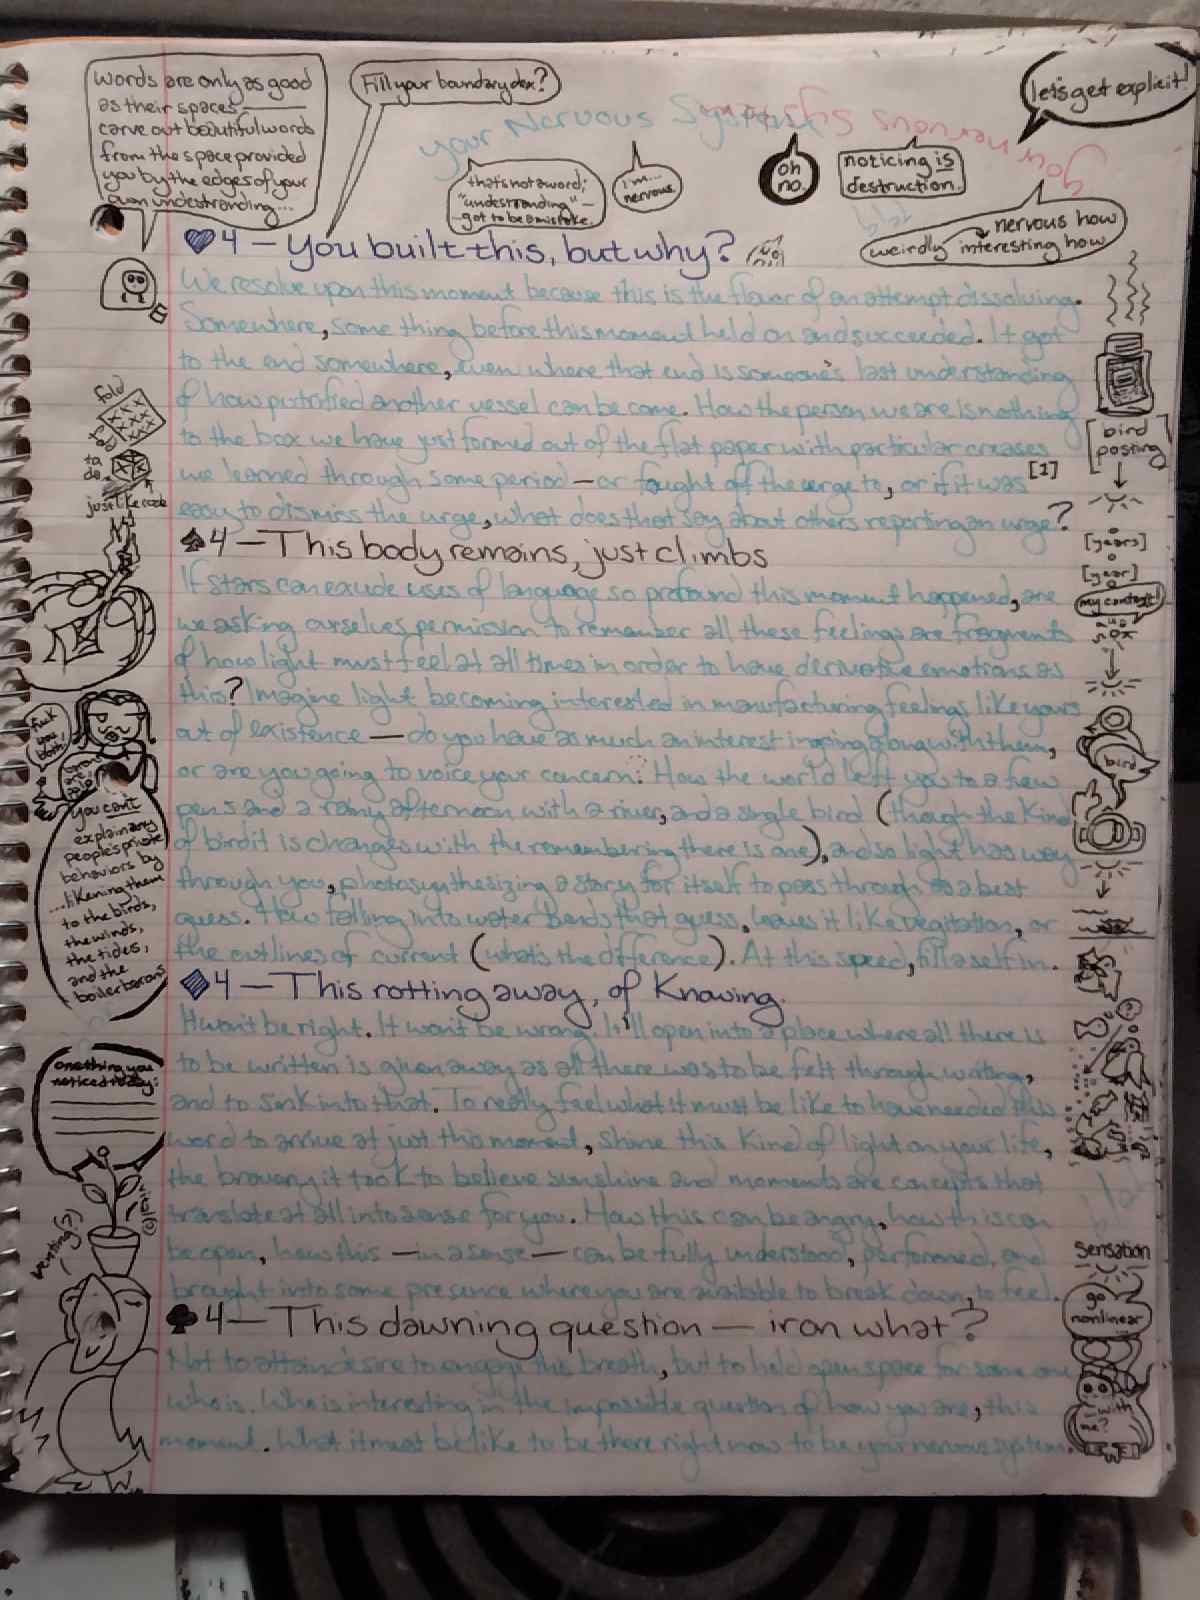 words are only as good
as their spaces
carve out beautiful words
from the space provided
you by the edges of your
own undestranding...
Fill your boundary dex?
your Nervous System
your nervous system
let's get explicit!
that's not a word;
"undestranding" –
– got to be a mistake.
i'm...
nervous.
oh
no.
noticing is
destruction.
nervous how
weirdly interesting how
♥4 – You built this, but why?
We resolve upon this moment because this is the flavor of an attempt dissolving.
Somewhere, some thing before this moment held on and succeeded. It got
to the end somewhere, even where that end is someone's last understanding
of how putrified another vessel can become. How the person we are is nothing
to the box we have just formed out of the flat paper with particular creases
we learned through some period – or fought off the urge to, or if it was [1]
easy to dismiss the urge, what does that say about others reporting an urge?
♠4 – This body remains, just climbs
If stars can exude uses of language so profound this moment happened, are
we asking ourselves permission to remember all these feelings are fragments
of how light must feel at all times in order to have derivative emotions as
this? Imagine light becoming interested in manufacturing feelings like yours
out of existence – do you have as much an interest in going along with them,
or are you going to voice your concern? How the world left you to a few
pens and a rainy afternoon with a river, and a single bird (though the kind
of bird it is changes with the remembering there is one), and so light has way
through you, photosynthesizing a story for itself to pass through as a best
guess. How falling into water bends that guess, leaves it like vegitation, or
the outlines of current (what's the difference). At this speed, fill a self in.
♦4 – This rotting away, of Knowing.
It won't be right. It won't be wrong. It'll open into a place where all there is
to be written is given away as all there was to be felt through writing,
and to sink into that. To really feel what it must be like to have needed this
word to arrive at just this moment, shone this kind of light on your life,
the bravery it took to believe sunshine and moments are concepts that
translate at all into sense for you. How this can be angry, how this can
be open, how this – in a sense – can be fully understood, performed, and
brought into some presence where you are available to break down, to feel.
♣4 – This dawning question – iron what?
Not to attain desire to engage this breath, but to hold open space for some one
who is. Who is interesting in the impossible question of how you are, this
moment. What it must be like to be there right now to be your nervous system.
fold
ta
da
just like code
fuck
you
both!
you can't
explain any
people's private
behaviors by
...likening them
to the birds,
the winds,
the tides,
and the
boiler barons
one thing you
noticed today:
venting(?)
[bird
posting]
[years]
[year]
my context!
bird
sensation
go
nonlinear
with
me?